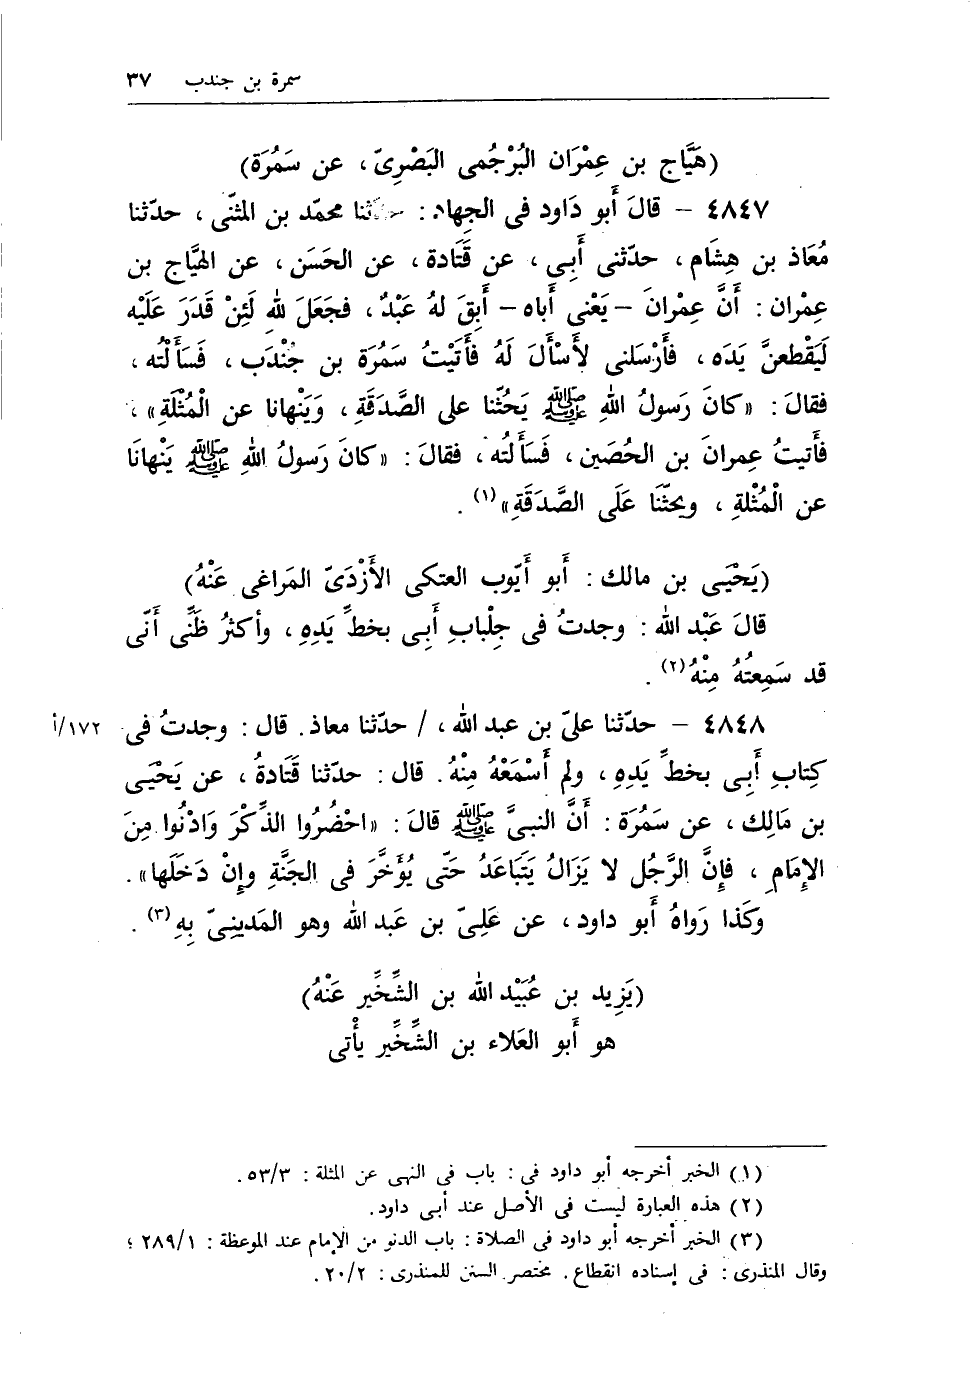 سمرة بن جندب ٣٧
(هَيَّاج بن عِمْرَان البُرْجُمى البَصْرِىّ، عن سَمُرَة)
٤٨٤٧ – قالَ أَبو دَاود فى الجِهاد: حدّثنا محمّد بن المثنّى، حدّثنا
مُعَاذ بن هِشَام، حدّثنى أَبِى، عن قَتَادة، عن الحَسَن، عن الهيَّاج بن
عِمْران: أَنَّ عِمْرانَ – يَعْنى أَباه – أَبِقَ لهُ عَبْدٌ، فجَعَلَ للهِ لَئِنْ قَدَرَ عَلَيْه
لَيَقْطعنَّ يَدَه، فأَرْسَلنى لأَسْأَلَ لَهُ فأَتَيْتُ سَمُرَة بن جُنْدَب، فَسَأَلْته،
فقالَ: «كانَ رَسولُ اللهِ ﷺ يَحُثّنا على الصَّدَقَةِ، وَيَنْهانا عن الْمُثْلَةِ»،
فأَتيتُ عِمرانَ بن الحُصَين، فَسَأَلتُه، فقالَ: «كانَ رَسولُ اللهِ ﷺ يَنْهانَا
عن الْمُثْلةِ، ويحثّنَا عَلَى الصَّدَقَةِ»(١).
(يَحْيَى بن مالك: أَبو أَيّوب العتكى الأَزْدَىّ المَراغى عَنْهُ)
قالَ عَبْد الله: وجدتُ فى جِلْبابِ أَبِى بخطِّ يَدِهِ، وأكثرُ ظَنِّى أَنّى
قد سَمِعتُهُ مِنْهُ(٢).
٤٨٤٨ – حدّثنا علىّ بن عبد الله، / حدّثنا معاذ. قال: وجدتُ فى ١٧٢/أ
كِتابِ أَبِى بخطِّ يَدِهِ، ولم أَسْمَعْهُ مِنْهُ. قال: حدّثنا قَتَادةُ، عن يَحْيَى
بن مَالِك، عن سَمُرَة: أَنَّ النبىَّ ﷺ قالَ: «احْضُرُوا الذِّكْرَ وَادْنُوا مِنَ
الإِمَامِ، فإِنَّ الرَّجُل لا يَزَالُ يَتَبَاعَدُ حَتّى يُؤَخَّرَ فى الجَنَّةِ وإِنْ دَخَلَها».
وكَذا رَواهُ أَبو داود، عن عَلِىّ بن عَبد الله وهو المَدينِىّ بِهِ(٣).
(يَزِيد بن عُبَيْد الله بن الشِّخِّير عَنْهُ)
هو أَبو العَلاء بن الشِّخِّير يأْتى
(١) الخبر أخرجه أبو داود فى: باب فى النهى عن المثلة: ٥٣/٣.
(٢) هذه العبارة ليست فى الأصل عند أبى داود.
(٣) الخبر أخرجه أبو داود فى الصلاة: باب الدنو من الإمام عند الموعظة: ٢٨٩/١؛
وقال المنذرى: فى إسناده انقطاع. مختصر السنن للمنذرى: ٢٠/٢.